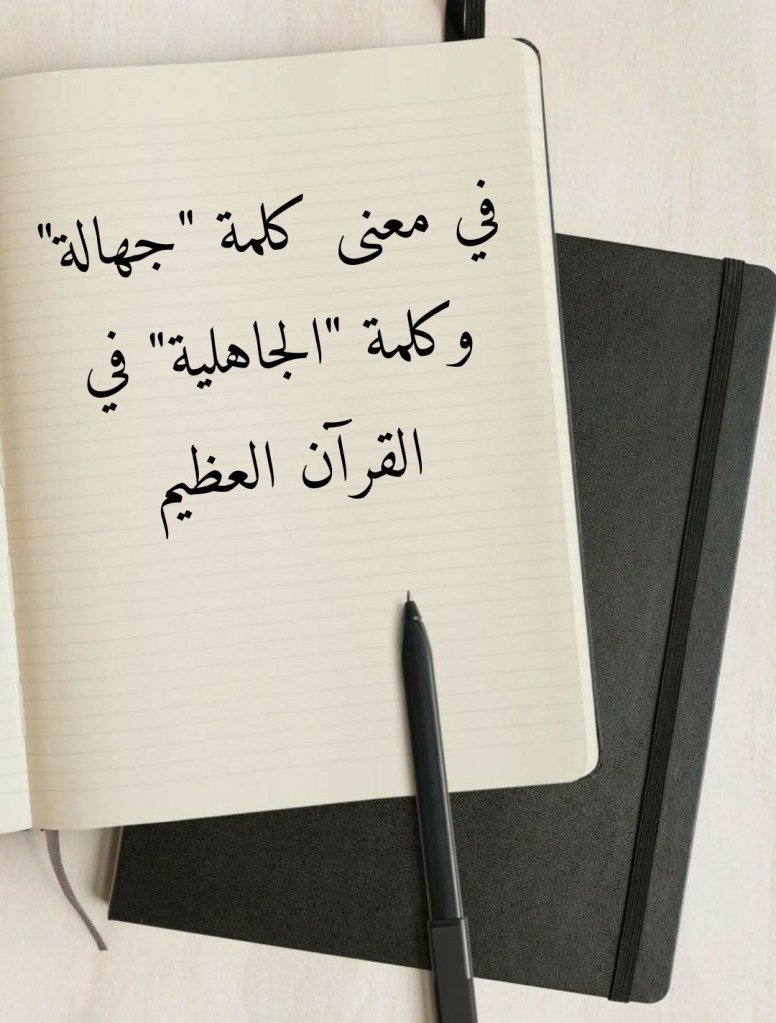 في معنى كلمة "جهالة"
وكلمة "الجاهلية" في
القرآن العظيم